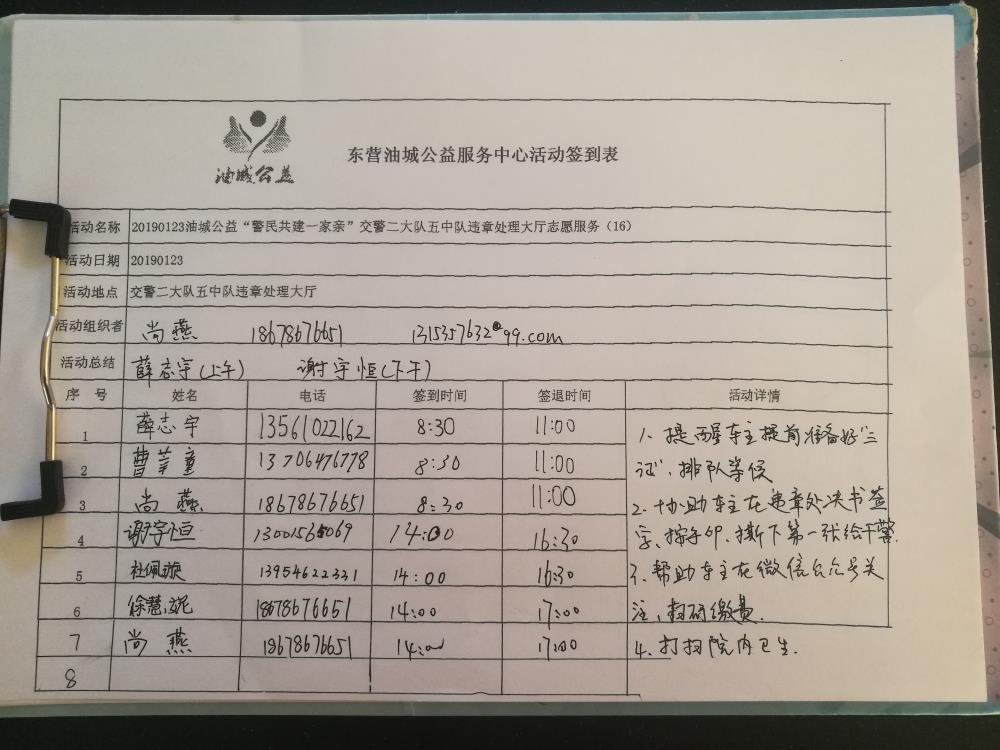 油城公益
东营油城公益服务中心活动签到表
活动名称 20190123油城公益“警民共建一家亲”交警二大队五中队违章处理大厅志愿服务（16）
活动日期 20190123
活动地点 交警二大队五中队违章处理大厅
活动组织者 尚燕 18678676651 1315357632@99.com
活动总结 薛志宇(上午) 谢宇恒(下午)
序号 姓名 电话 签到时间 签退时间 活动详情
1 薛志宇 13561022162 8:30 11:00
2 曹菲童 13706476778 8:30 11:00
3 尚燕 18678676651 8:30 11:00
4 谢宇恒 14:00 16:30
5 杜佩漩 13954622331 14:00 16:30
6 徐慧妮 18678676651 14:00 17:00
7 尚燕 18678676651 14:00 17:00
8
1、提醒车主提前准备好“三
证”，排队等候
2、协助车主在违章处决书签
字、按手印、撕下第一张给干警.
3、帮助车主在微信公众号关
注，扫码缴费.
4、打扫院内卫生.